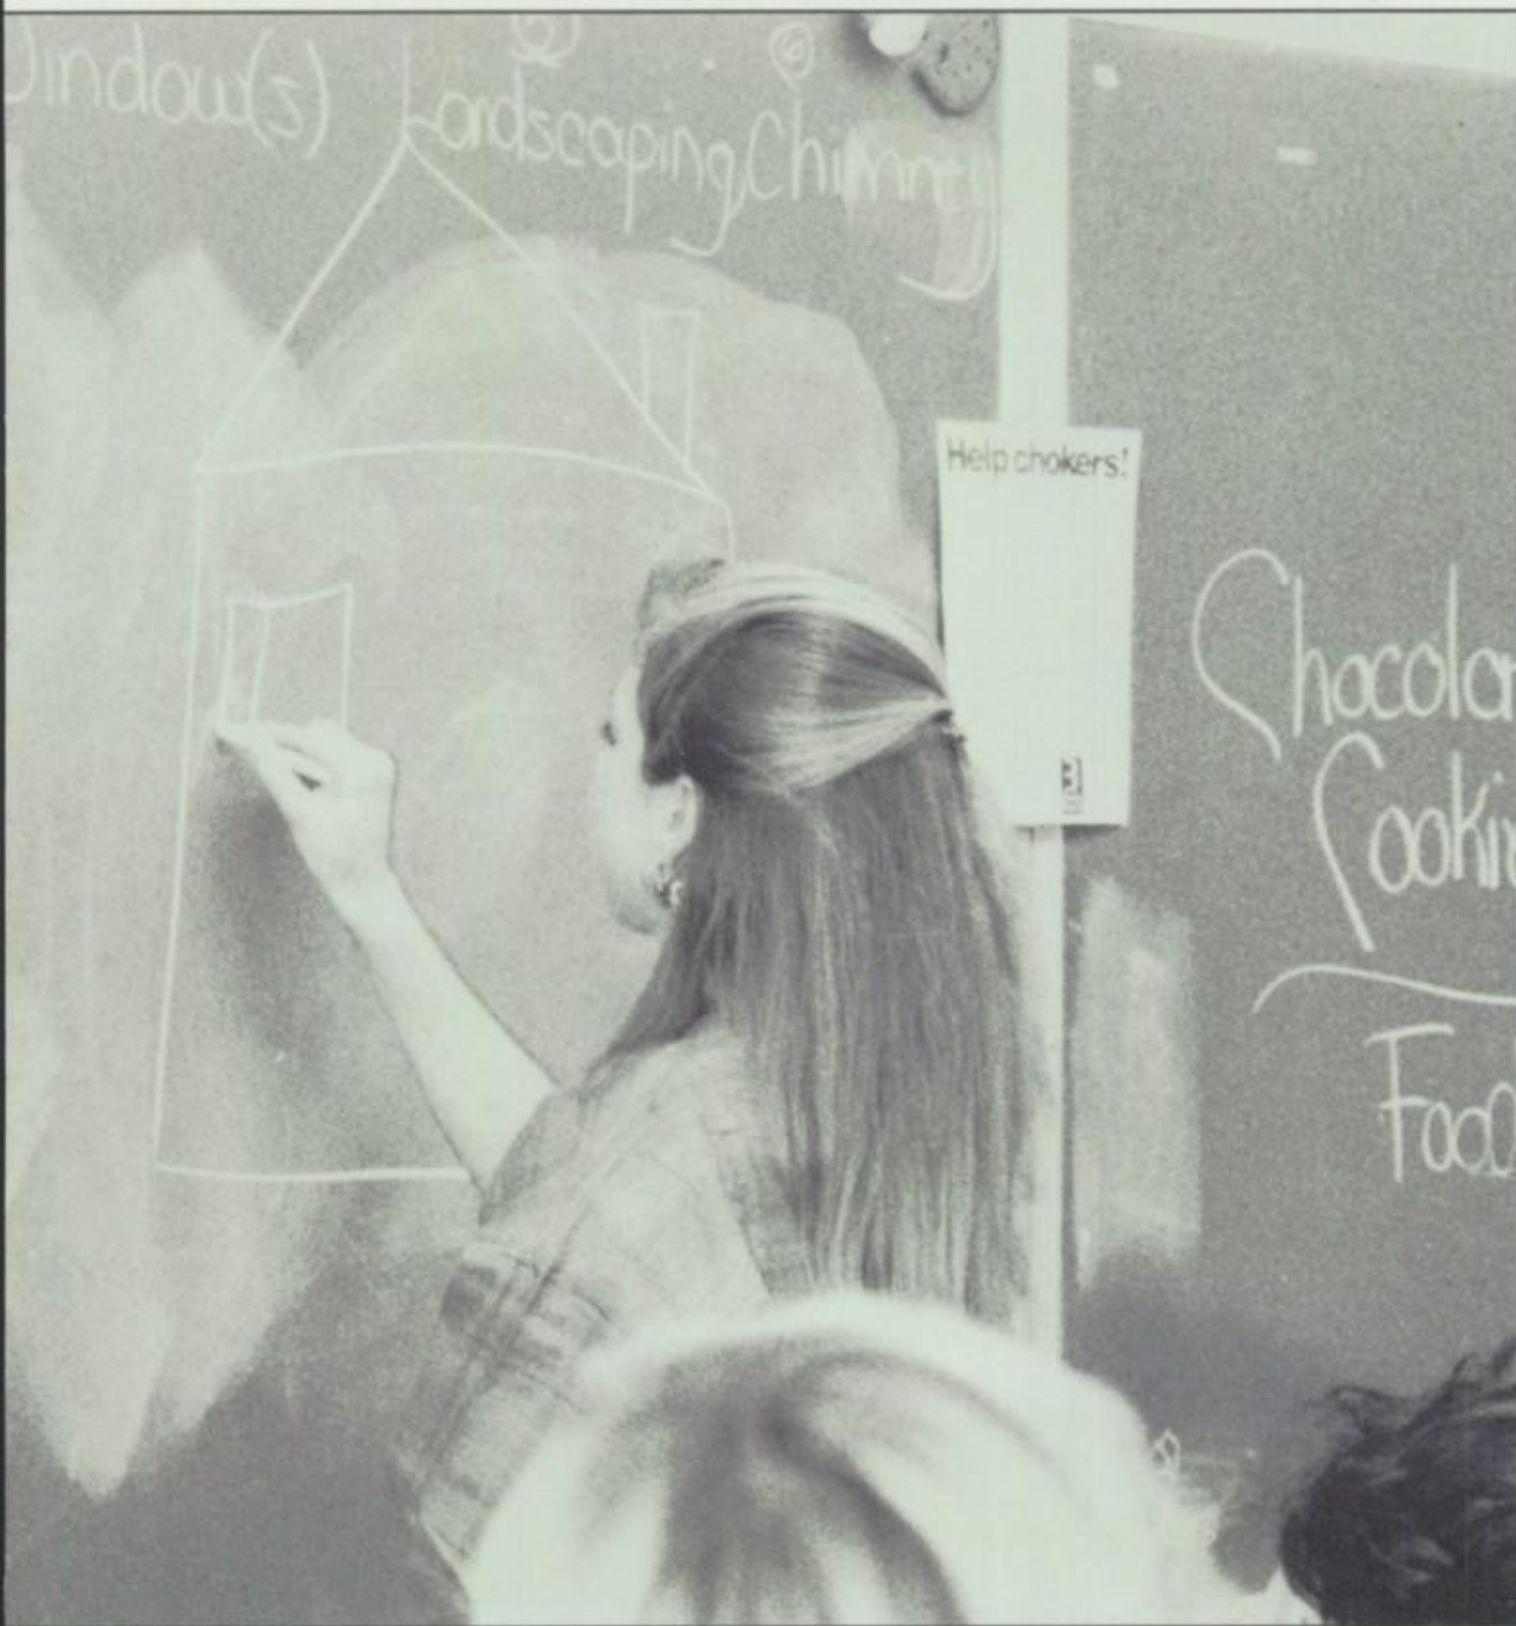 Window(s)
Landscaping Chimney
6
Help chokers!
3
Cooki
Food